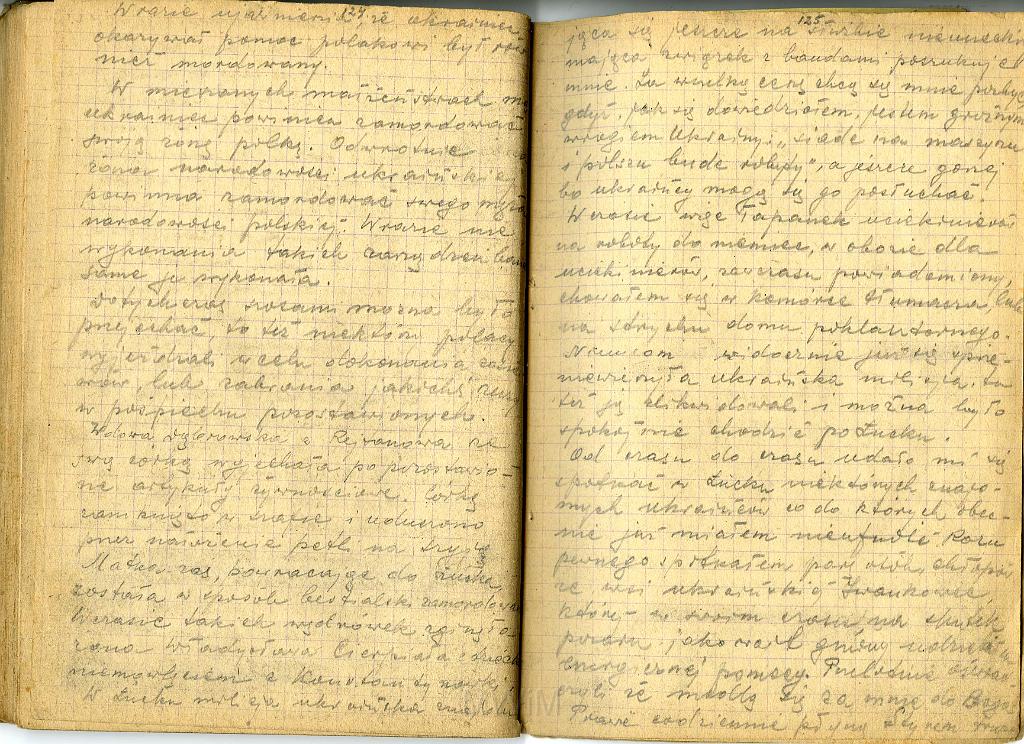 124
W razie ujawnienia że ukrainiec
okazywał pomoc polakowi był rów
nież mordowany.
W mieszanych małżeństwach mąż
ukrainiec powinien zamordować
swoją żonę polkę. Odwrotnie
żona narodowości ukraińskiej
powinna zamordować swego męża
narodowości polskiej. W razie nie
wykonania takich zarządzeń banda
sama je wykonała.
Dotychczas szosami można było
przejechać, to też niektórzy polacy
wyjeżdżali w celu dokonania
lub zabrania jakichś rzeczy
w pośpiechu pozostawionych.
Wdowa Dąbrowska z Rejtanowa ze
swą córką wyjechała po pozostawio-
ne artykuły żywnościowe. Córkę
zamknięto w szafie i uduszono
przez założenie pętli na szyję
Matka zaś, powracając do Łucka
została w sposób bestialski zamordowana
W czasie takich wędrówek zginęła
żona Władysława Cierpiała z
niemowlęciem z Konstantynówki.
W Łucku milicja ukraińska znajdu
125
jąca się jeszcze na służbie niemieckiej
mająca związek z bandami poszukuje
mnie. Za wszelką cenę chcą się mnie pozbyć
gdyż, jak się dowiedziałem, jestem groźnym
wrogiem Ukrainy: „siade na maszynu
i polszu bude robyty", a jeszcze gorzej
bo ukraińcy mogą się go posłuchać.
W czasie więc łapanek uciekinierów
na roboty do niemiec, w obozie dla
uciekinierów, zawczasu powiadomiony,
chowałem się w komórce tłumacza, lub
na strychu domu poklasztornego.
Niemcom widocznie już się sprze-
niewierzyła ukraińska milicja. to
też ją zlikwidowali i można było
spokojnie chodzić po Łucku.
Od czasu do czasu udało mi się
spotkać w Łucku niektórych znajo-
mych ukraińców co do których obec-
nie już miałem nieufność Razu
pewnego spotkałem parę osób chłopów
ze wsi ukraińskiej Iwankowce,
której w swoim czasie na skutek
pożaru jako wójt gminy udzieliłem
energicznej pomocy. Przeludnie oświad-
czyli że modlą się za mnie do Boga
Prawie codziennie płyną Styrem trupy